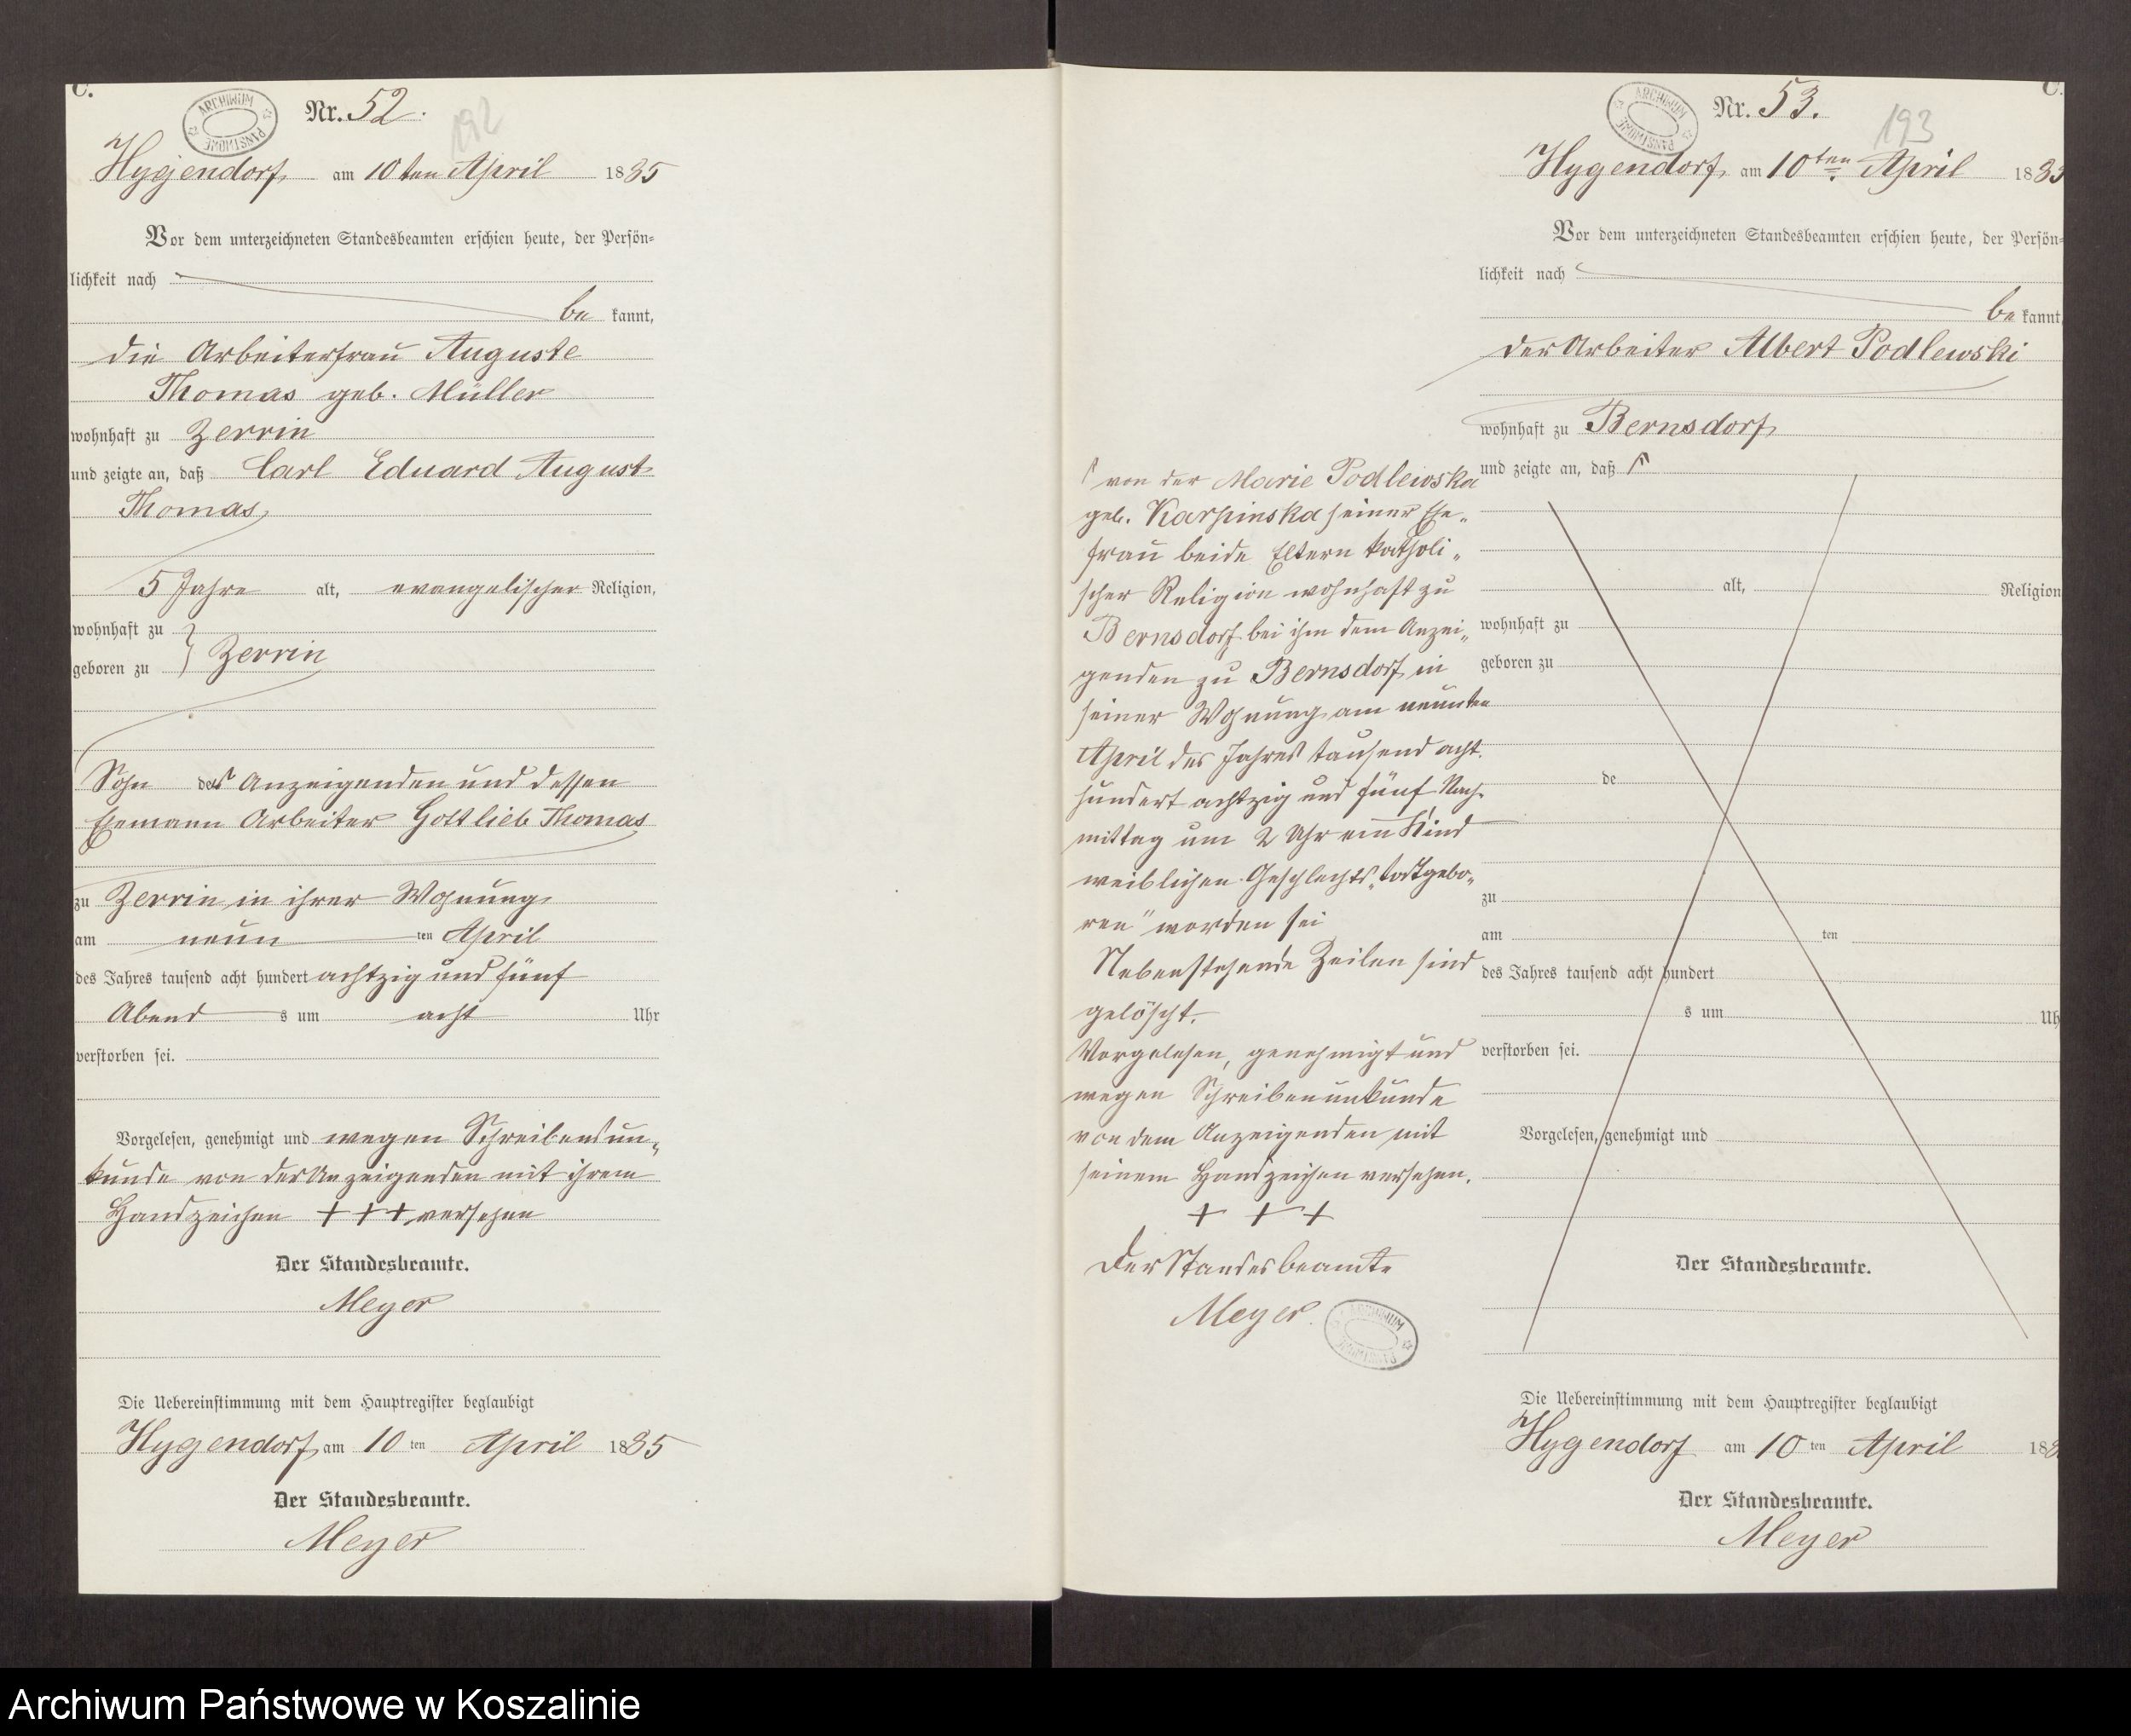 C.
ARCHIWUM PAŃSTWOWE
Nr. 52.
192
Hygendorf am 10ten April 1885
Vor dem unterzeichneten Standesbeamten erschien heute, der Persön-
lichkeit nach
be kannt,
die Arbeiterfrau Auguste
Thomas geb. Müller
wohnhaft zu Zerrin
und zeigte an, daß Carl Eduard August
Thomas,
5 Jahre alt, evangelischer Religion,
wohnhaft zu
geboren zu } Zerrin
Sohn der Anzeigenden und dessen
Ehemann Arbeiter Gottlieb Thomas
zu Zerrin in ihrer Wohnung
am neun ten April
des Jahres tausend acht hundert achtzig und fünf
Abend s um acht Uhr
verstorben sei.
Vorgelesen, genehmigt und wegen Schreibensun-
kunde von der Anzeigenden mit ihrem
Handzeichen +++ versehen
Der Standesbeamte.
Meyer
Die Uebereinstimmung mit dem Hauptregister beglaubigt
Hygendorf, am 10 ten April 1885
Der Standesbeamte.
Meyer
C.
ARCHIWUM PAŃSTWOWE
Nr. 53.
193
Hygendorf, am 10ten April 188
Vor dem unterzeichneten Standesbeamten erschien heute, der Persön-
lichkeit nach
be kannt,
der Arbeiter Albert Podlewski
wohnhaft zu Bernsdorf
und zeigte an, daß Γ
Γ von der Marie Podlewska
geb. Karpinska seiner Ehe-
frau beide Eltern katholi-
scher Religion wohnhaft zu
Bernsdorf bei ihm dem Anzei-
genden zu Bernsdorf in
seiner Wohnung am neunten
April des Jahres tausend acht
hundert achtzig und fünf Nach-
mittag um 2 Uhr ein Kind
weiblichen Geschlechts „todtgebo-
ren" worden sei
Nebenstehende Zeilen sind
gelöscht.
Vorgelesen, genehmigt und
wegen Schreibenunkunde
von dem Anzeigenden mit
seinem Handzeichen versehen.
+ + +
Der Standesbeamte
Meyer.
ARCHIWUM PAŃSTWOWE
alt, Religion
wohnhaft zu
geboren zu
de
zu
am ten
des Jahres tausend acht hundert
s um Uh
verstorben sei.
Vorgelesen, genehmigt und
Der Standesbeamte.
Die Uebereinstimmung mit dem Hauptregister beglaubigt
Hygendorf am 10 ten April 188
Der Standesbeamte.
Meyer
Archiwum Państwowe w Koszalinie